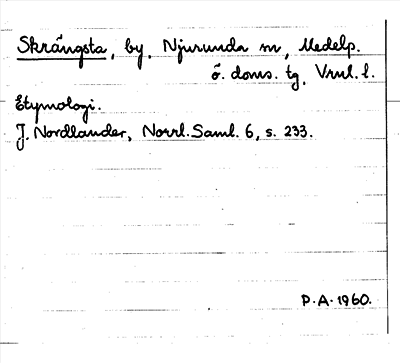 Skrängsta, by, Njurunda sn, Medelp.
ö. doms. tg. Vrnl. l.
Etymologi.
J. Nordlander, Norrl. Saml. 6, s. 233.
P.A. 1960.